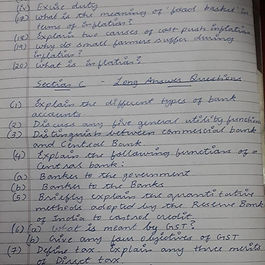 (16) Excise duty
(17) What is the meaning of 'food basket' in
terms of inflation?
(18) Explain two causes of cost push inflation
(19) Why do small farmers suffer during
inflation?
(20) What is inflation?
Section C - Long Answer Questions
(1) Explain the different types of bank
accounts
(2) Discuss any five general utility functions
(3) Distinguish between commercial bank
and Central Bank.
(4) Explain the following functions of a
Central bank:
(a) Banker to the government
(b) Banker to the Banks
(5) Briefly explain the quantitative
methods adopted by the Reserve Bank
of India to control credit
(6) (a) What is meant by GST?
(b) Give any four objectives of GST
(7) Define tax. Explain any three merits
of Direct tax.